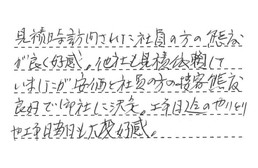 見積時訪問された社員の方の態度
が良く好感。他社も見積依頼して
いましたが安価と社員の方の接客態度
良好で御社に決定。工事日迄のやりとり
や工事当日も大変好感。